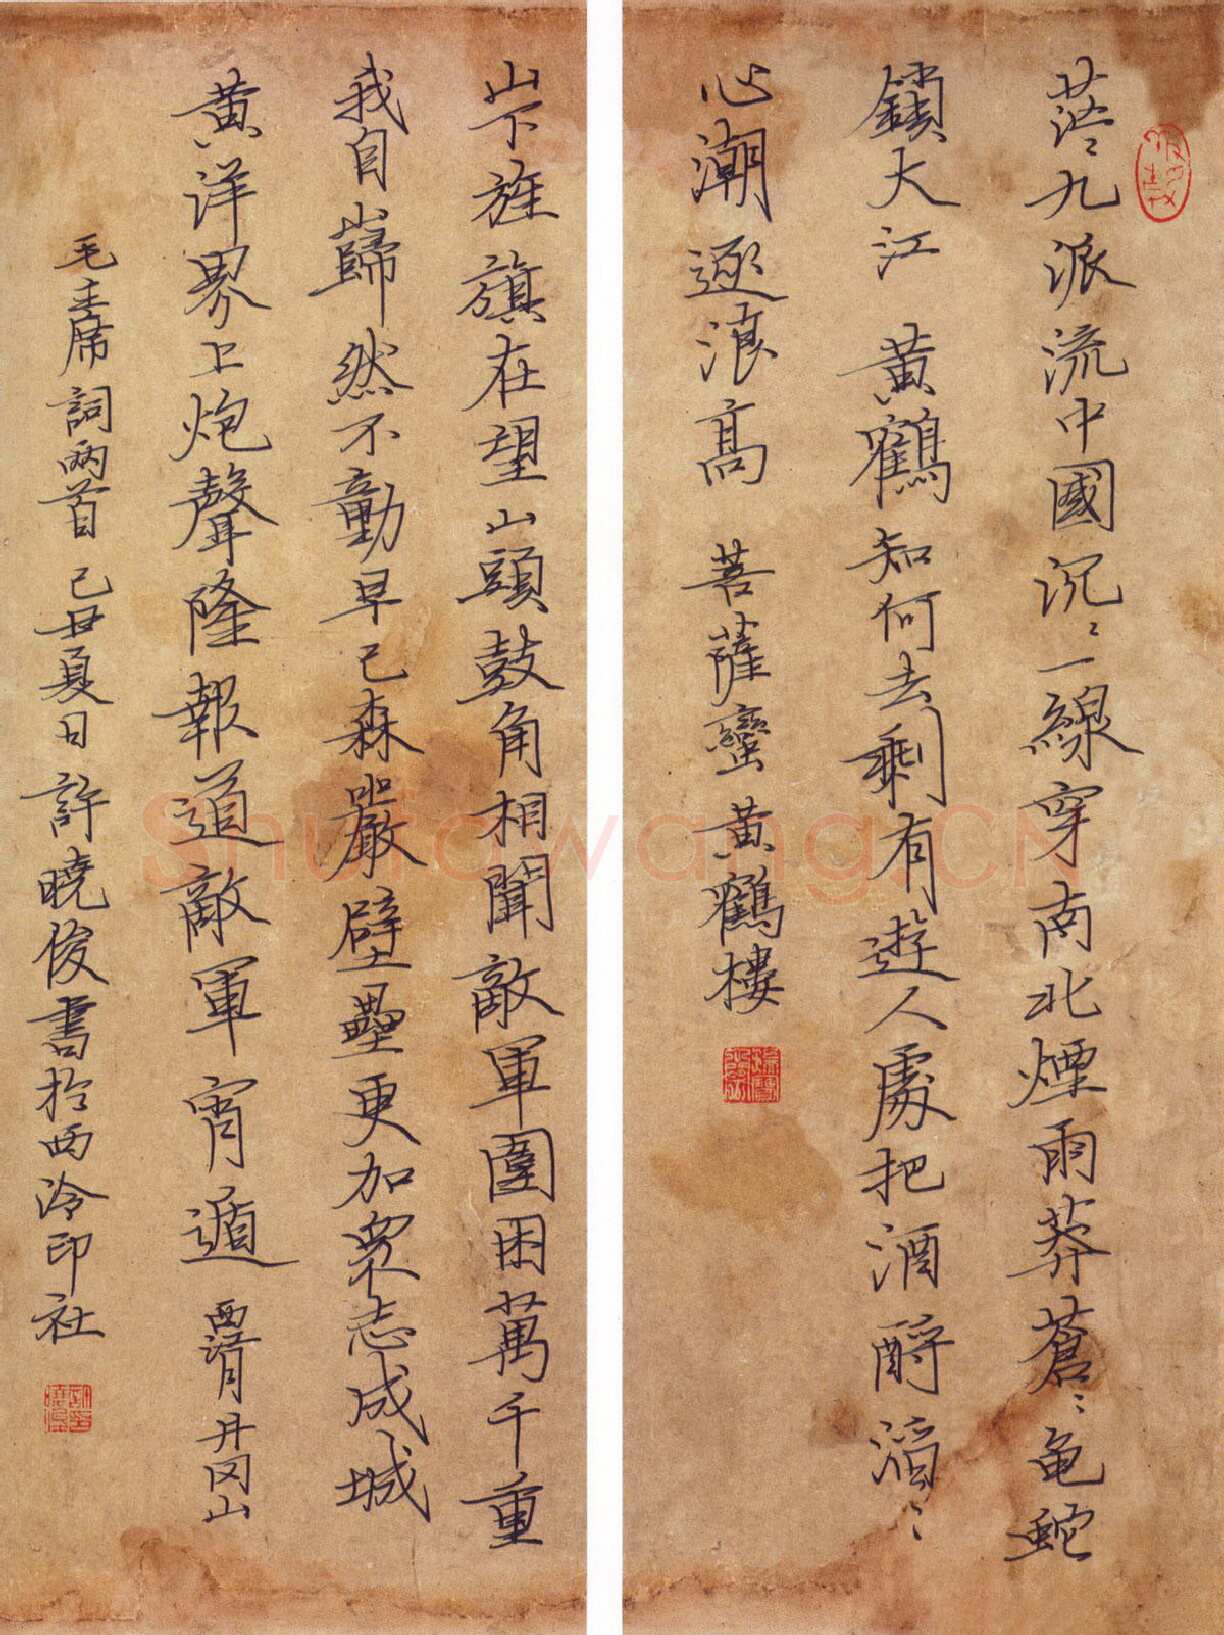 茫〻九派流中國沉〻一線穿南北煙雨莽蒼〻龜蛇
鎖大江 黃鶴知何去剩有遊人處把酒酹滔〻
心潮逐浪高 菩薩蠻 黃鶴樓
山下旌旗在望山頭鼓角相聞敵軍圍困萬千重
我自巋然不動早已森嚴壁壘更加眾志成城
黃洋界上炮聲隆報道敵軍宵遁 西江月 井岡山
毛主席詞兩首 己丑夏日 許曉俊書於西泠印社
Shufawang.CN